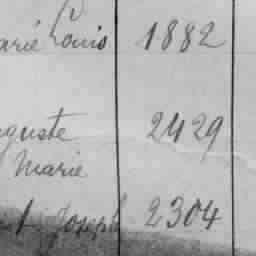 arié Louis 1882
guste 2429
Marie
Joseph 2304